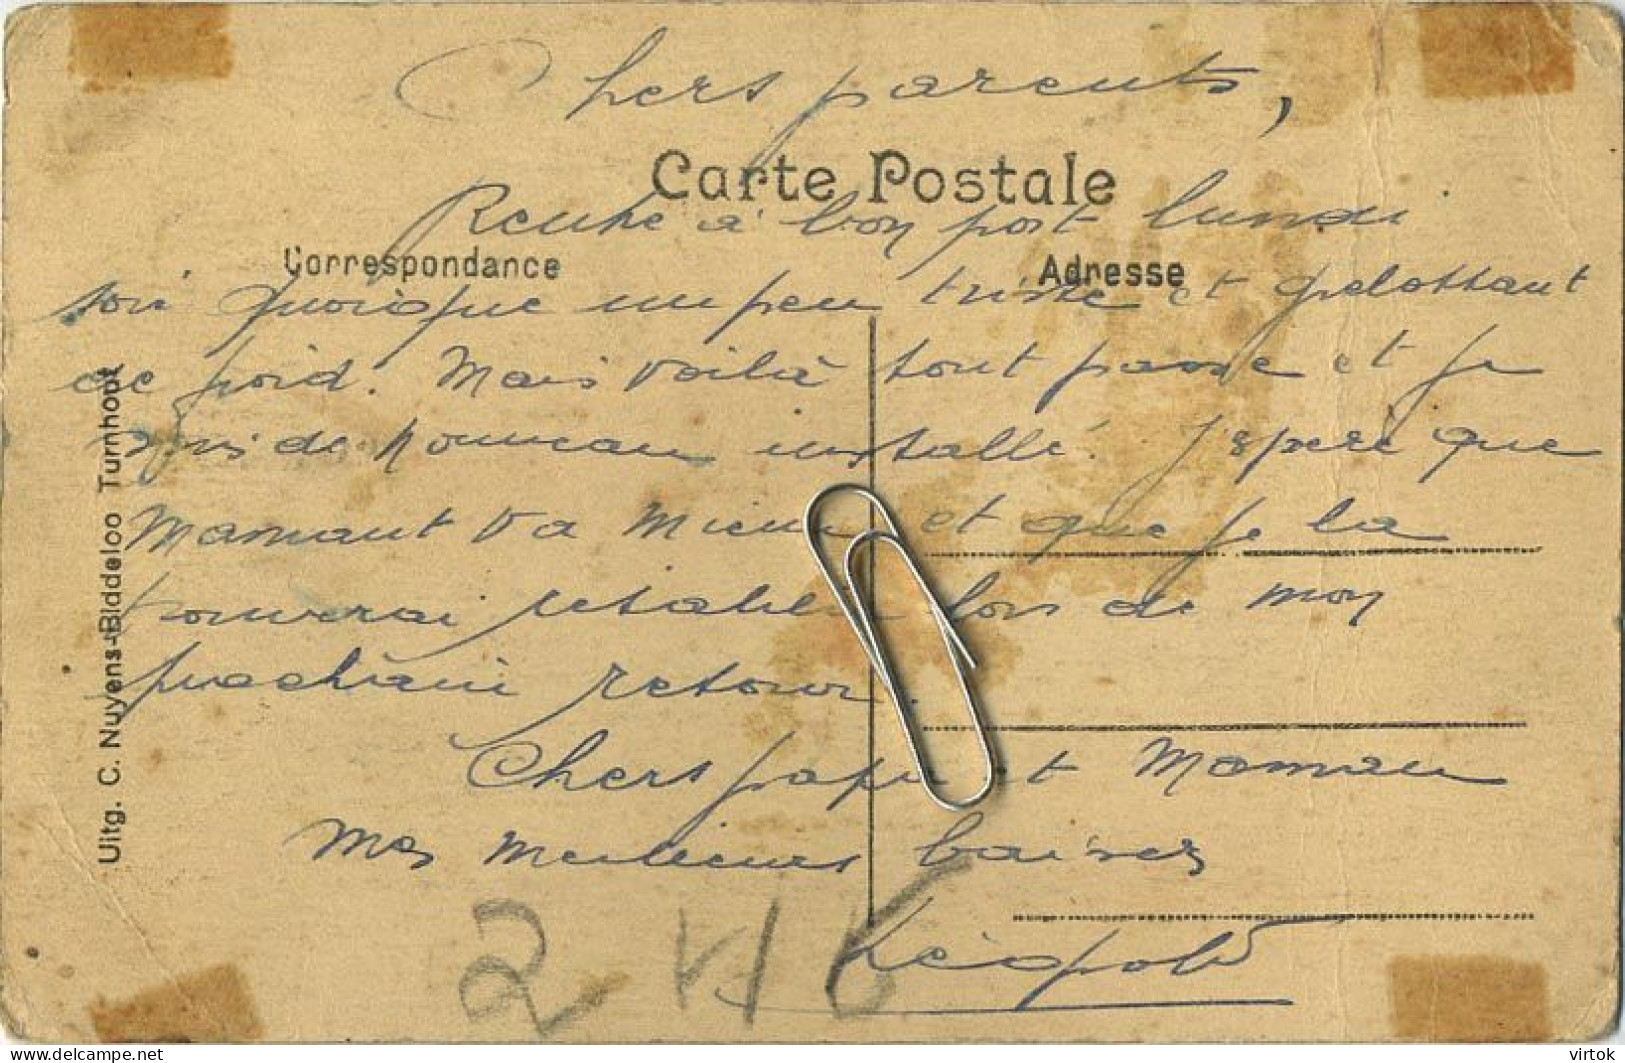 Chers parents,
Carte Postale
Rentré à bon port lundi
Correspondance
Adresse
soir quoique un peu triste et grelottant
de froid. Mais voilà tout passe et je
suis de nouveau installé. J'espère que
Mamant va mieux et que je la
trouverai rétablie lors de mon
prochain retour.
Chers papa et Maman
mes meilleurs baisers
Léopold
246
Uitg. C. Nuyens-Biddeloo Turnhout
delcampe.net
virtok